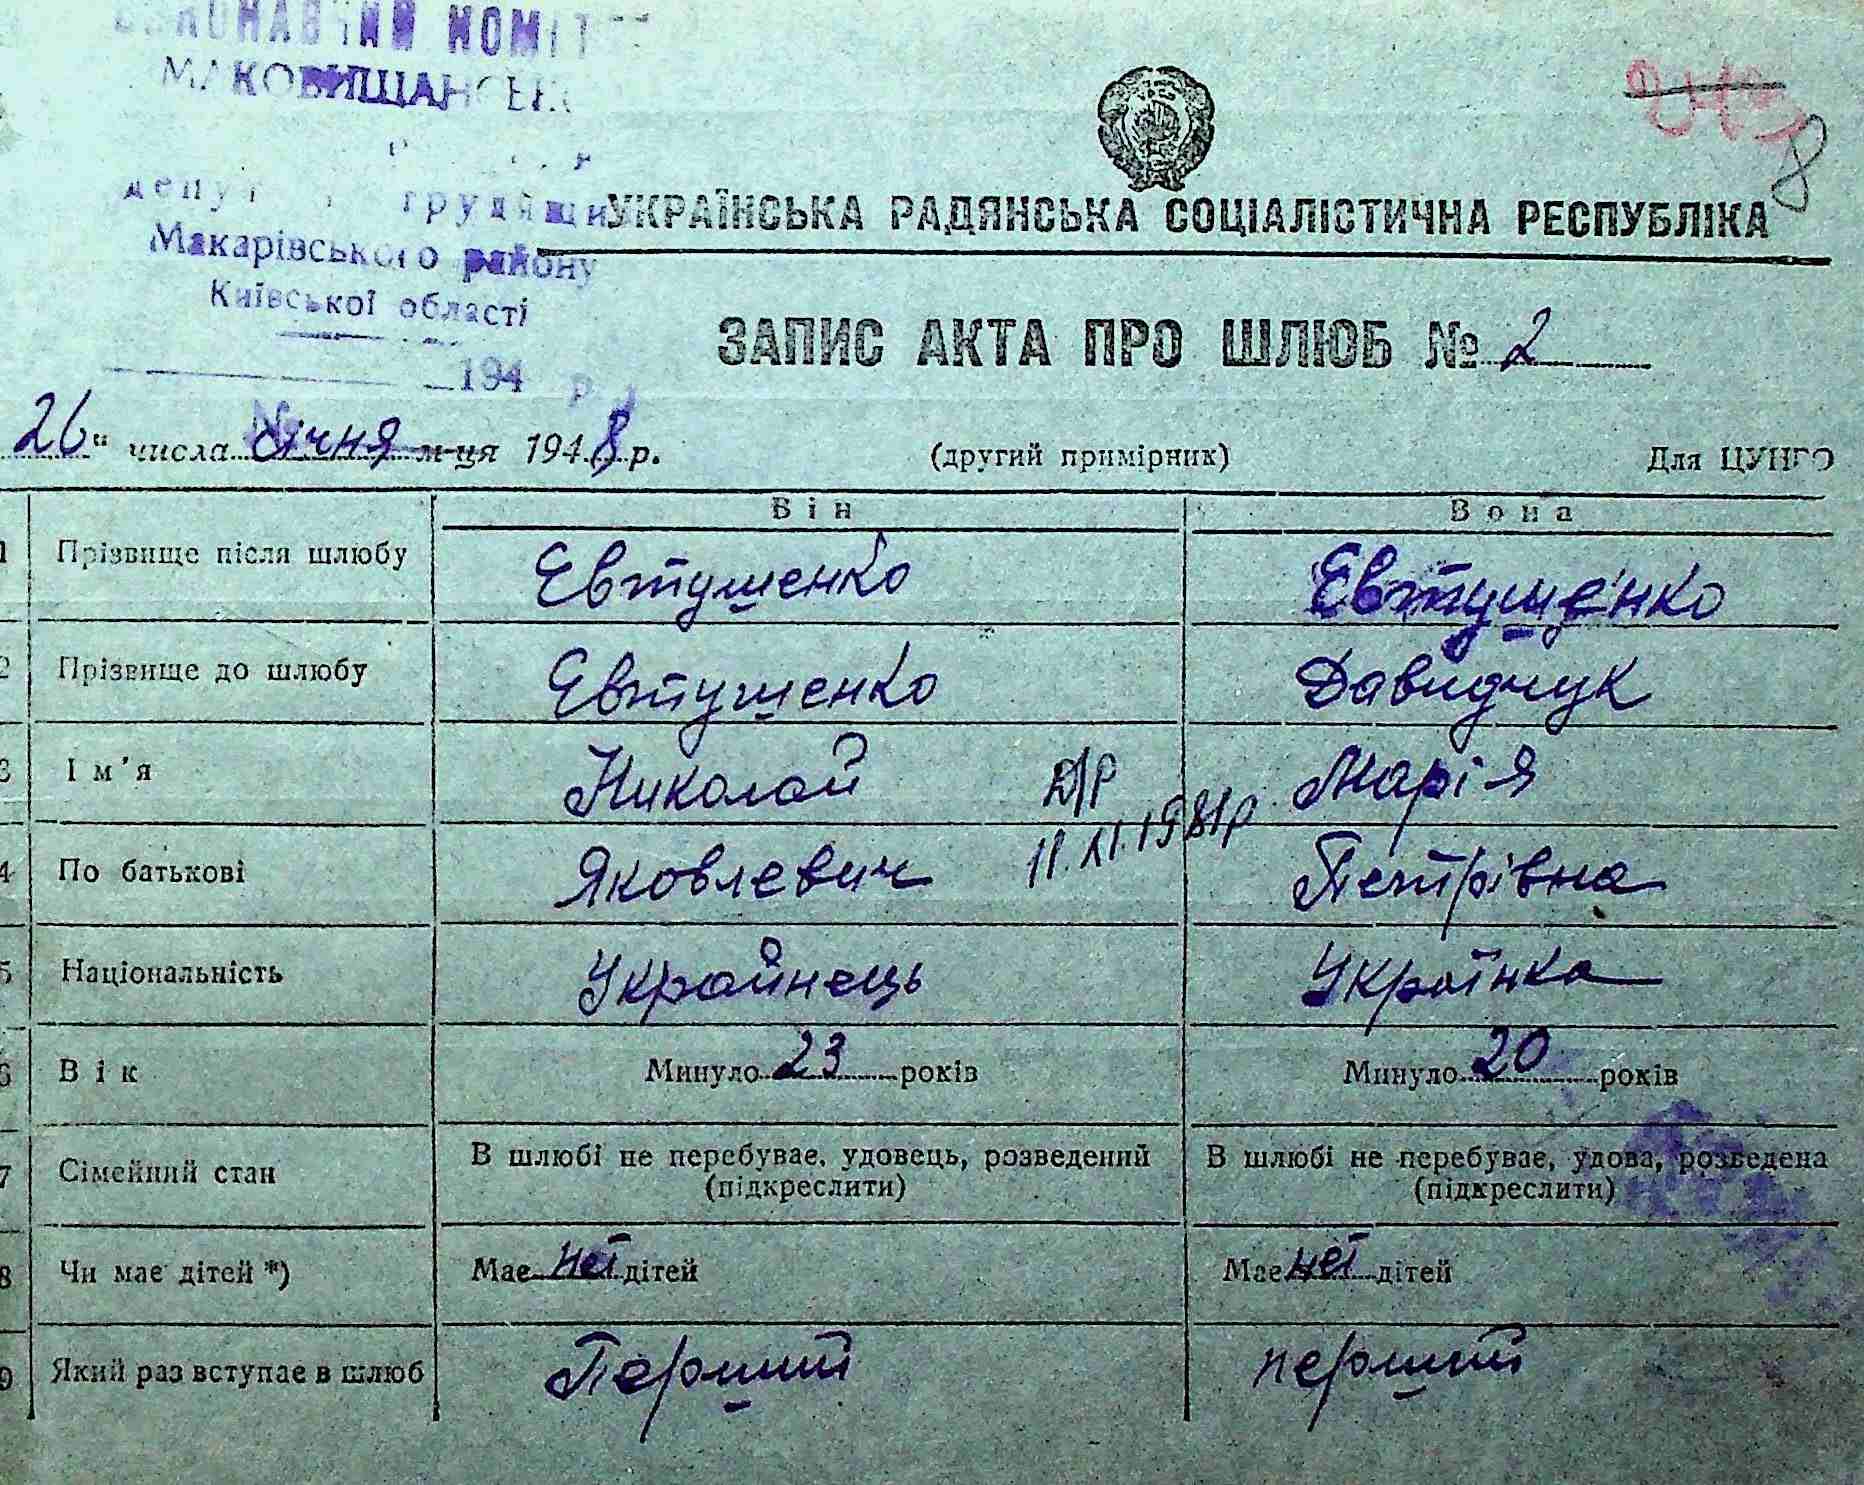 ВИКОНАВЧИЙ КОМІТЕТ
МАКОВИЩАНСЬК
трудящих
Макарівського району
Київської області
194 р.
8
УКРАЇНСЬКА РАДЯНСЬКА СОЦІАЛІСТИЧНА РЕСПУБЛІКА
ЗАПИС АКТА ПРО ШЛЮБ № 2
26 " числа січня м-ця 1948 р. (другий примірник) Для ЦУНГО
Він Вона
1 Прізвище після шлюбу Евтушенко Евтушенко
2 Прізвище до шлюбу Евтушенко Давидчук
3 Ім'я Николай Д/Р Марія
11.XI.1981р.
4 По батькові Яковлевич Петрівна
5 Національність Украйнець Українка
6 Вік Минуло 23 років Минуло 20 років
7 Сімейний стан В шлюбі не перебуває, удовець, розведений В шлюбі не перебуває, удова, розведена
(підкреслити) (підкреслити)
8 Чи має дітей *) Має неї дітей Має неї дітей
9 Який раз вступає в шлюб Перший перший